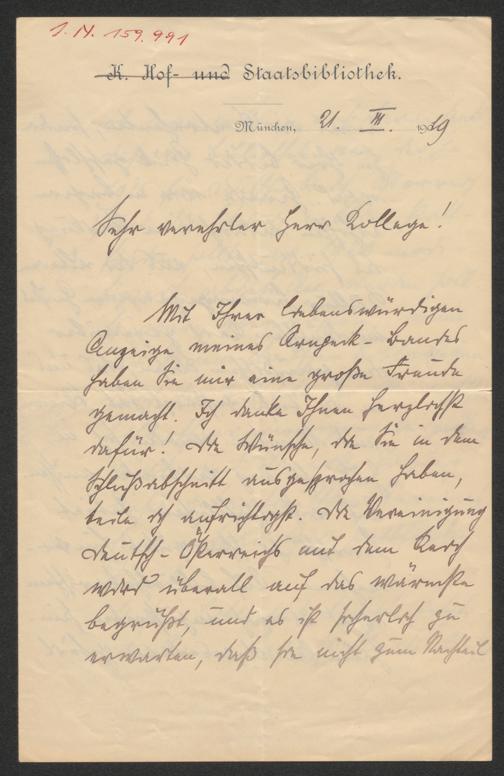 I. N. 159.991
K. Hof- und Staatsbibliothek.
München, 21. III. 1919
Sehr verehrter Herr Kollege!
Mit Ihrer liebenswürdigen
Anzeige meines Arnpeck-Bandes
haben Sie mir eine große Freude
gemacht. Ich danke Ihnen herzlichst
dafür! Die Wünsche, die Sie in dem
Schlußabschnitt ausgesprochen haben,
teile ich aufrichtigst. Die Vereinigung
Deutsch-Österreichs mit dem Reich
wird überall auf das wärmste
begrüßt, und es ist sicherlich zu
erwarten, daß sie nicht zum Nachteil